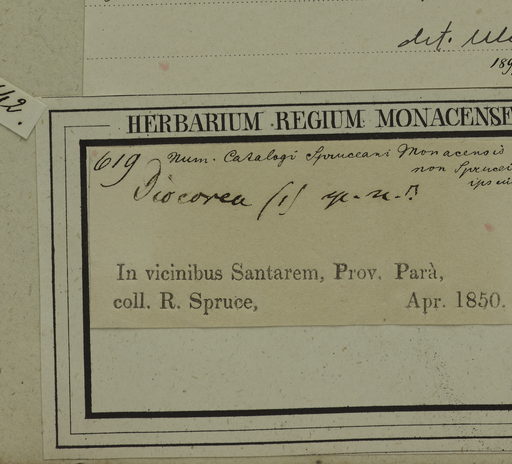 det.
189
42.
HERBARIUM REGIUM MONACENSE
619 Num. Catalogi Spruceani Monacensis
non Sprucei
ipsius
Diocorea (1)
In vicinibus Santarem, Prov. Parà,
coll. R. Spruce, Apr. 1850.